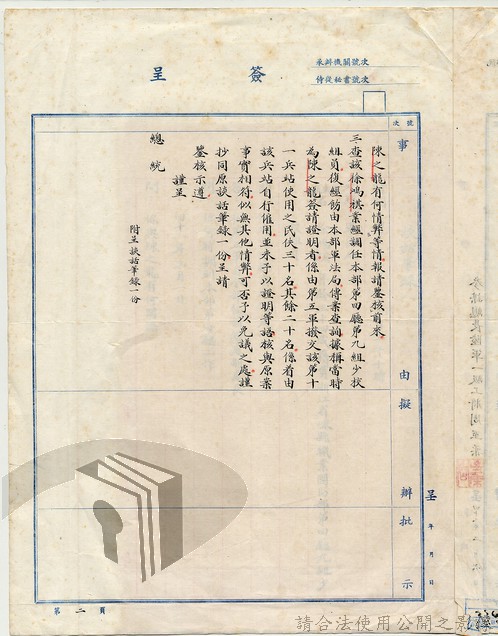 承辦機關號次
侍從秘書號次
簽呈
號次
事由
擬辦
批示
陳之龍有何情弊等情報請鑒核前來
三查該徐鳴祺業經調任本部第四廳第九組少校
組員復經飭由本部軍法局傳案查詢據稱當時
為陳之龍簽請證明者係由第五軍撥交該第十
一兵站使用之民伕三十名其餘二十名係有由
該兵站自行僱用並未予以證明等語核與原案
事實相符似無其他情弊可否予以免議之處謹
抄同原談話筆錄一份呈請
鑒核示遵
謹呈
總統
附呈談話筆錄一份
呈 年 月 日
第二頁
請合法使用公開之影像